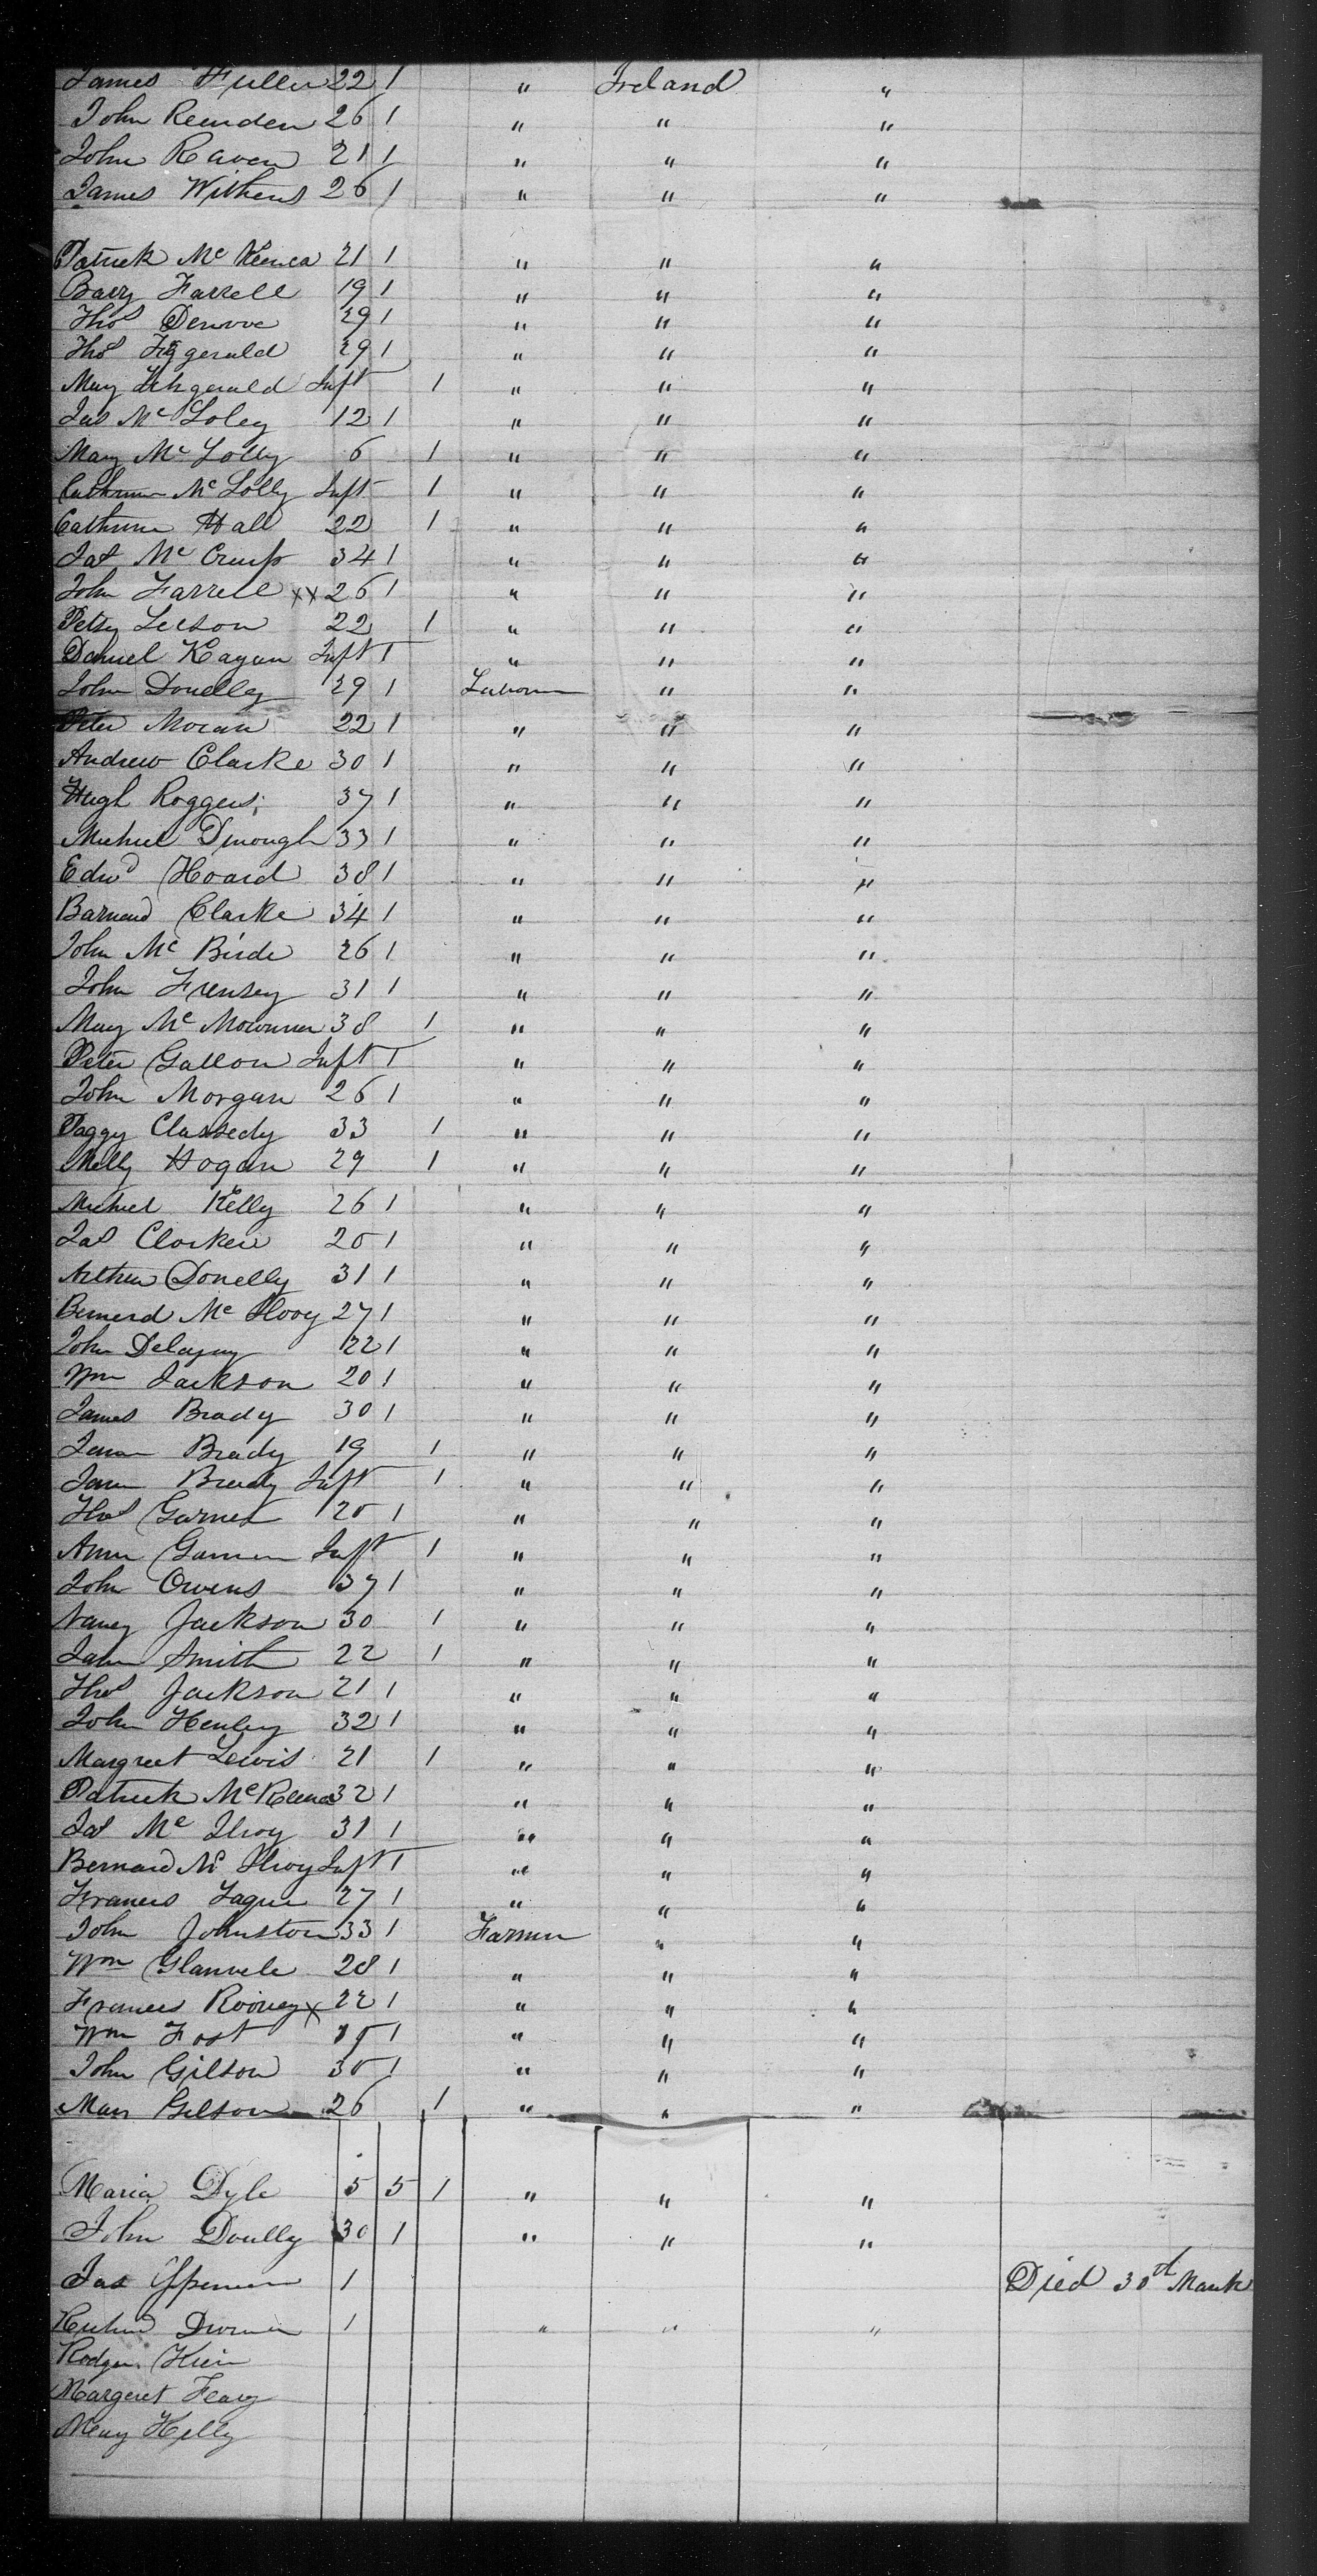 James Fuller 22 1 " Ireland "
John Reenden 26 1 " " "
John Raven 21 1 " " "
James Withens 26 1 " " "
Patrick Mc Keenca 21 1 " " "
Barry Farrell 19 1 " " "
Thos 29 1 " " "
Thos Fitzgerald 29 1 " " "
Mary Fitzgerald Inft 1 " " "
Jas Mc Loley 12 1 " " "
Mary Mc Lolly 6 1 " " "
Cathrine Mc Lolly Inft 1 " " "
Cathrine Hall 22 1 " " "
Jas Mc 34 1 " " "
John Farrell xx 26 1 " " "
Petsy Leeson 22 1 " " "
Daniel Kagan Inft 1 " " "
John Donelley 29 1 Labourer " "
Peter Moran 22 1 " " "
Andrew Clarke 30 1 " " "
Hugh Roggers 37 1 " " "
Michael Dinough 33 1 " " "
Edwd Hoard 38 1 " " "
Barnard Clarke 34 1 " " "
John Mc Birde 26 1 " " "
John Frensey 31 1 " " "
Mary Mc 38 1 " " "
Peter Gallon Inft 1 " " "
John Morgan 26 1 " " "
Paggy Classedy 33 1 " " "
Melly Hogan 29 1 " " "
Michael Kelly 26 1 " " "
Jas Clarken 20 1 " " "
Arthur Donelly 31 1 " " "
Bernerd Mc Ilroy 27 1 " " "
John Delagny 22 1 " " "
Wm Jackson 20 1 " " "
James Brady 30 1 " " "
Jane Brady 19 1 " " "
Jane Brady Inft 1 " " "
Thos Garner 20 1 " " "
Ann Garner Inft 1 " " "
John Owens 37 1 " " "
Nancy Jackson 30 1 " " "
Jane Smith 22 1 " " "
Thos Jackson 21 1 " " "
John Henley 32 1 " " "
Margreet Lewis 21 1 " " "
Patrick McKeena 32 1 " " "
Jas Mc Ilroy 31 1 " " "
Bernard Mc Ilroy Inft 1 " " "
Frances Fague 27 1 " " "
John Johnston 33 1 Farmer " "
Wm Glanvele 28 1 " " "
Frances Rooney x 22 1 " " "
Wm Fost 1 " " "
John Gilson 30 1 " " "
Mary Gilson 26 1 " " "
Maria Dyle 5 5 1 " " "
John Doully 30 1 " " "
Jas 1 Died 30th March
1 " " "
Rodger Kein
Margeret Feary
Mary Kelly